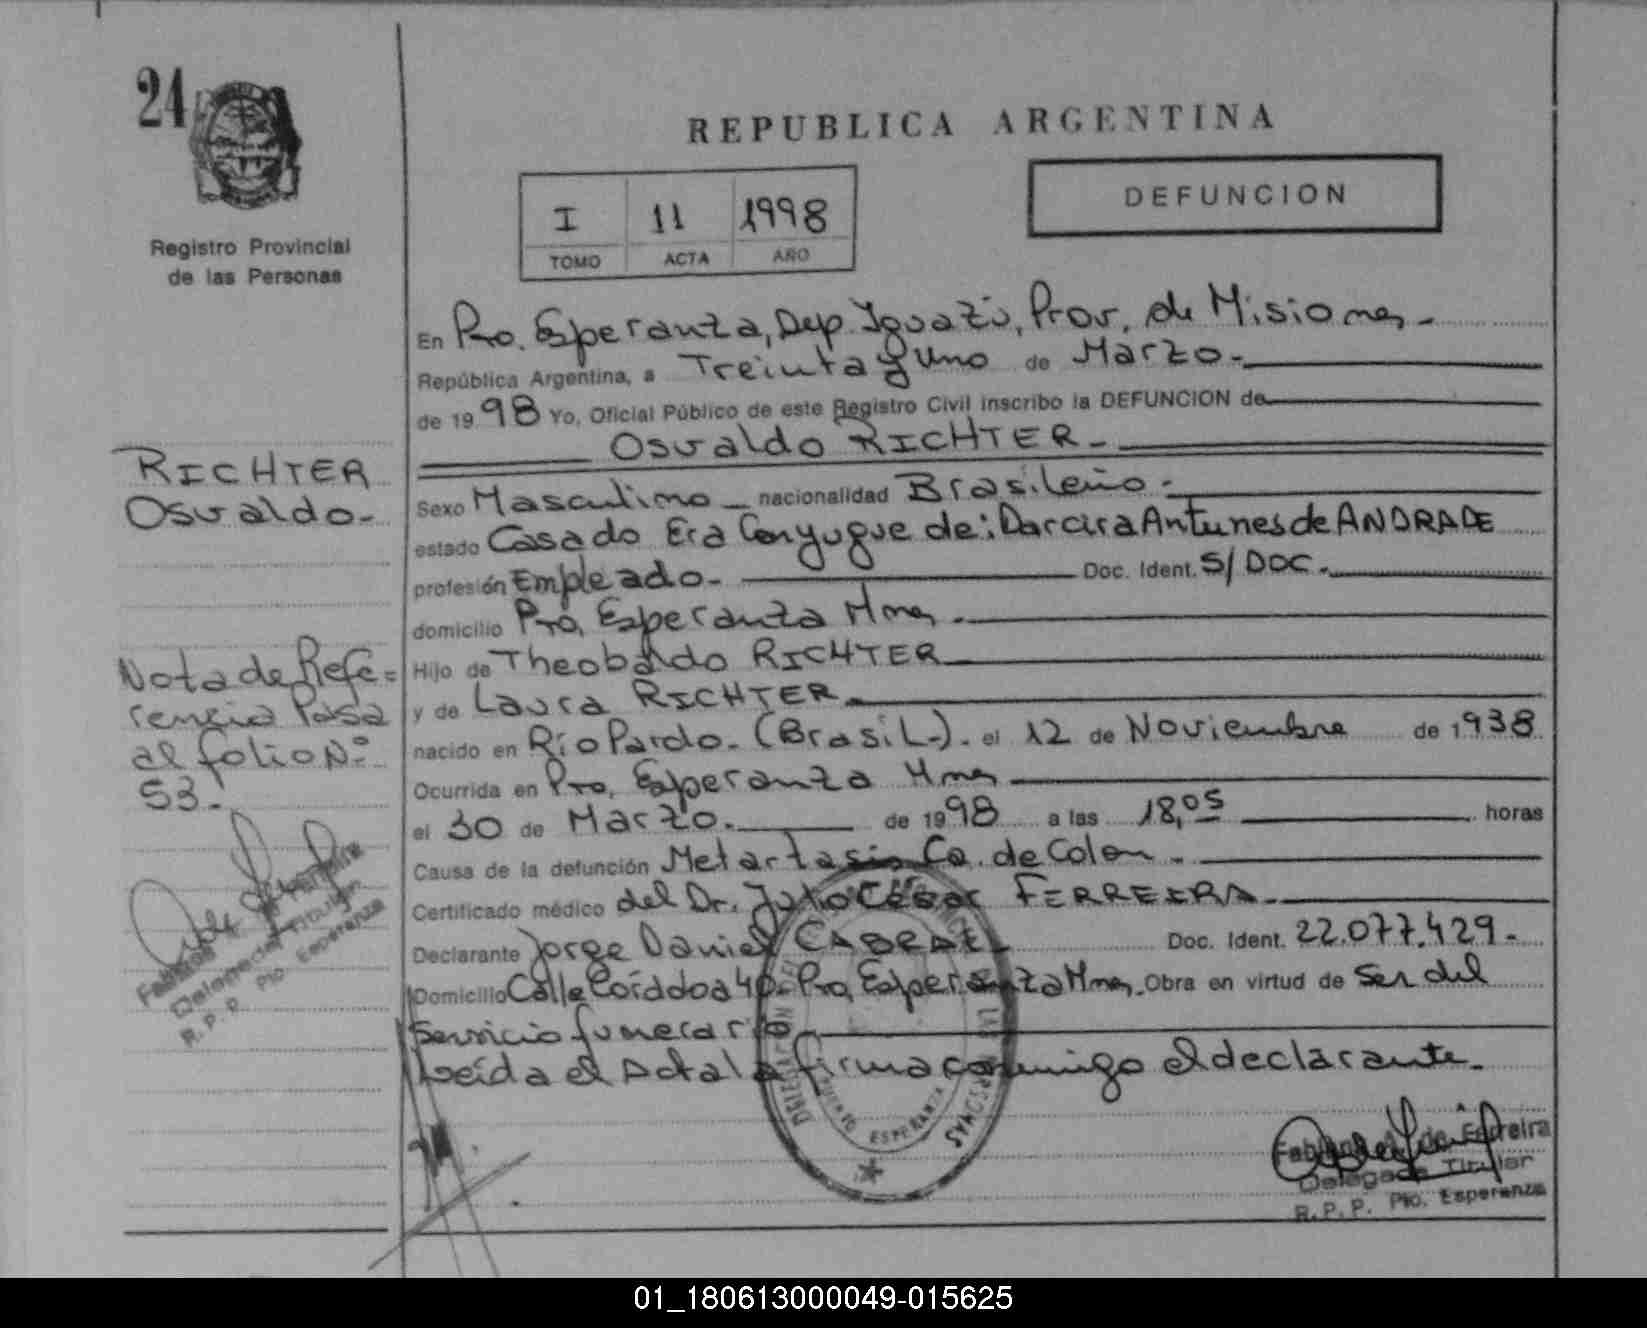 24
Registro Provincial
de las Personas
REPUBLICA ARGENTINA
I 11 1998
TOMO ACTA AÑO
DEFUNCION
En Pto. Esperanza, Dep. Iguazú, Prov. de Misiones.-
República Argentina, a Treinta y Uno de Marzo.-
de 1998 Yo, Oficial Público de este Registro Civil inscribo la DEFUNCION de
Osvaldo RICHTER.-
Sexo Masculino - nacionalidad Brasileño.-
estado Casado Era Conyugue de: Darcira Antunes de ANDRADE
profesión Empleado.- Doc. Ident. S/DOC.
domicilio Pto. Esperanza Mnes.
Hijo de Theobaldo RICHTER
y de Laura RICHTER.
nacido en Río Pardo.- (BrasiL.-). el 12 de Noviembre de 1938
Ocurrida en Pto. Esperanza Mnes
el 30 de Marzo. de 1998 a las 18,05 horas
Causa de la defunción Metartasis Ca. de Colon.-
Certificado médico del Dr. Julio César FERREIRA.
Declarante Jorge Daniel CABRAL Doc. Ident. 22.077.429.-
Domicilio Calle Córddoa 40.- Pto. Esperanza Mnes. Obra en virtud de Ser del
Servicio funerario.
Leída el Acta la firma conmigo el declarante.-
RICHTER
Osvaldo.-
Nota de Refe=
rencia Pasa
al folio Nº
53.-
de Ferreira
Delegada Titular
R. P. P. Pto. Esperanza
DELEGACION
LAS PERSONAS
PUERTO ESPERANZA
de Ferreira
Delegada Titular
R. P. P. Pto. Esperanza
01_180613000049-015625